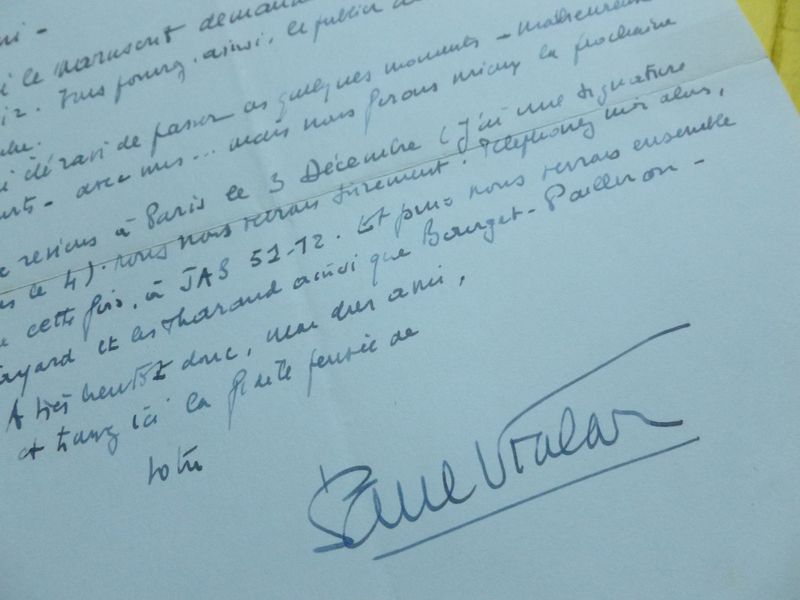 le manuscrit demand
Vous pourrez, ainsi, le publier
ravi de passer ces quelques moments – malheureux
avec mes... mais nous ferons mieux la prochaine
reviens à Paris le 3 Décembre (j'ai une signature
le 4). nous nous verrons sûrement. Téléphonez moi alors,
cette fois, à JAS 51-12. Et puis nous verrons ensemble
et les Tharaud ainsi que Bourget-Pailleron –
A très bientôt donc, mon cher ami,
et trouvez ici la fidèle pensée de
votre
Paul Vialar